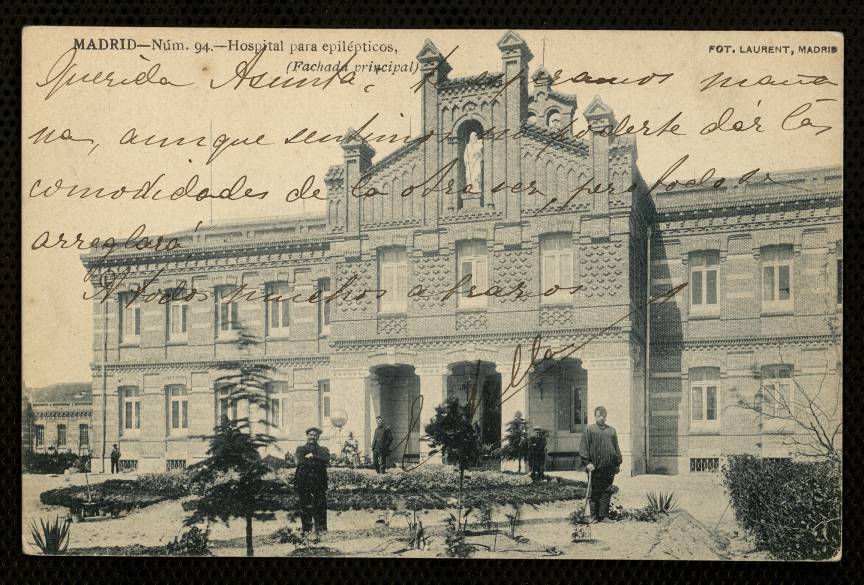 MADRID—Núm. 94.—Hospital para epilépticos,
(Fachada principal)
FOT. LAURENT, MADRID
Querida Asunta, te esperamos maña
na, aunque sentimos no poderte dár lás
comodidades de la otra vez, pero todo se
arreglará.
A todos muchos abrazos